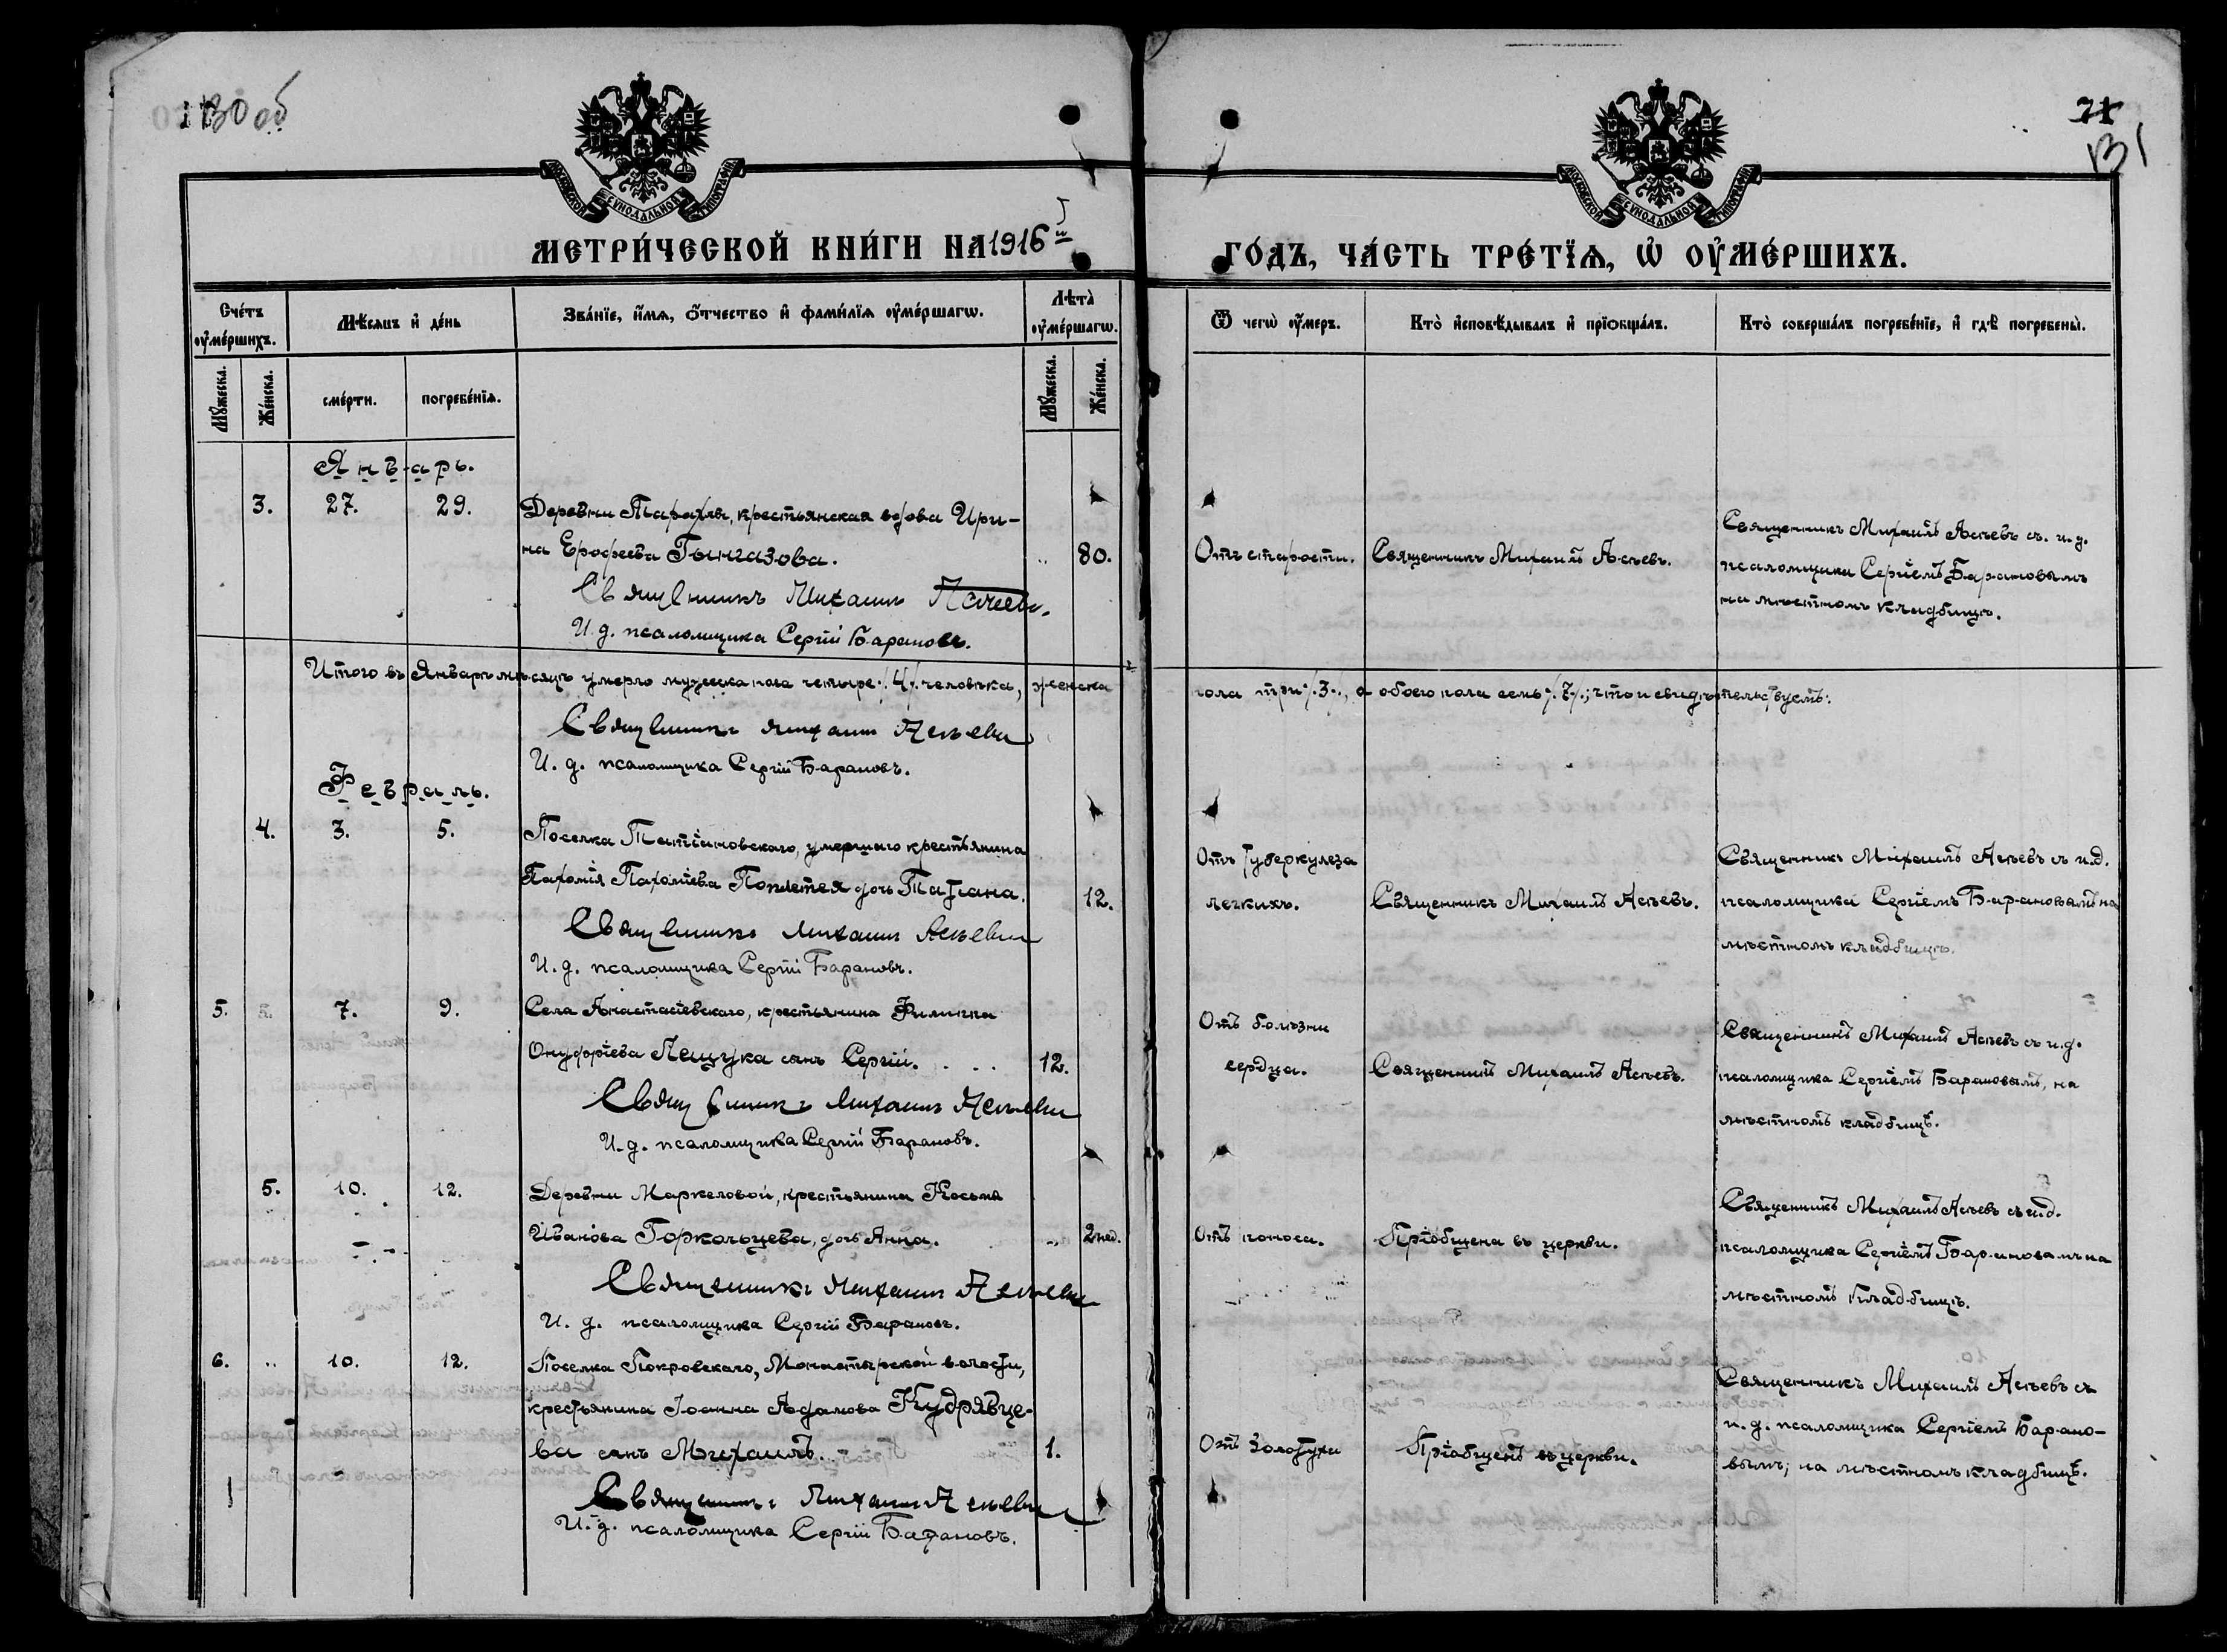 130 об
71
131
МОСКОВСКОЙ СѴНОДАЛЬНОЙ ТИПОГРАФІИ
МОСКОВСКОЙ СѴНОДАЛЬНОЙ ТИПОГРАФІИ
МЕТРИ́ЧЕСКОЙ КНИ́ГИ НА 1916 й
ГО́ДЪ, ЧА́СТЬ ТРЕ́ТЇѦ, Ѡ҆ ОУ҆МЕ́РШИХЪ.
Сче́тъ оу҆ме́ршихъ.
Мѣ́сяцъ и҆ де́нь
Зва́нїе, и҆́мѧ, ѻ҆́тчество и҆ фами́лїѧ оу҆ме́ршагѡ.
Лѣ́та оу҆ме́ршагѡ.
Ѿ чегѡ̀ оу҆́меръ.
Кто̀ и҆сповѣ́дывалъ и҆ прїѡбща́лъ.
Кто̀ соверша́лъ погребе́нїе, и҆ гдѣ̀ погребены̀.
Мꙋ́жеска.
Же́нска.
сме́рти.
погребе́нїѧ.
Мꙋ́жеска.
Же́нска.
Январь.
3. 27. 29.
Деревни Тарахлы, крестьянская вдова Ири-
на Ерофеева Тынгазова. „ 80.
Священникъ Михаилъ Асѣевъ.
И. д. псаломщика Сергій Барановъ.
Отъ старости.
Священникъ Михаилъ Асѣевъ.
Священникъ Михаилъ Асѣевъ съ и. д.
псаломщика Сергіемъ Барановымъ
на мѣстномъ кладбищѣ.
Итого въ Январѣ мѣсяцѣ умерло мужеска пола четыре ./. 4 ./. человѣка, женска
пола три ./. 3 ./., а обоего пола семь ./. 7 ./.; что и свидѣтельствуемъ:
Священникъ Михаилъ Асѣевъ
И. д. псаломщика Сергій Барановъ.
Февраль.
4. 3. 5.
Поселка Татіановскаго, умершаго крестьянина
Пахомія Пахоміева дочь Татіана. 12.
Священникъ Михаилъ Асѣевъ
И. д. псаломщика Сергій Барановъ.
Отъ туберкулеза
легкихъ.
Священникъ Михаилъ Асѣевъ.
Священникъ Михаилъ Асѣевъ съ и.д.
псаломщика Сергіемъ Барановымъ на
мѣстномъ кладбищѣ.
5. 7. 9.
Села Анастасіевскаго, крестьянина Филиппа
Онуфріева Лещука сынъ Сергій. . . . 12.
Священникъ Михаилъ Асѣевъ
И. д. псаломщика Сергій Барановъ.
Отъ болѣзни
сердца.
Священникъ Михаилъ Асѣевъ.
Священникъ Михаилъ Асѣевъ съ и.д.
псаломщика Сергіемъ Барановымъ, на
мѣстномъ кладбищѣ.
5. 10. 12.
Деревни Маркеловой, крестьянина Косьмы
Иванова Горкольцева, дочь Анна. „ 2 нед.
Священникъ Михаилъ Асѣевъ
И. д. псаломщика Сергій Барановъ.
Отъ поноса.
Пріобщена въ церкви.
Священникъ Михаилъ Асѣевъ съ и.д.
псаломщика Сергіемъ Барановымъ на
мѣстномъ кладбищѣ.
6. „ 10. 12.
Поселка Покровскаго, Монастырской волости,
крестьянина Іоанна Адамова Кудрявце-
ва сынъ Михаилъ. 1.
Священникъ Михаилъ Асѣевъ
И. д. псаломщика Сергій Барановъ.
Отъ золотухи
Пріобщенъ въ церкви.
Священникъ Михаилъ Асѣевъ съ
и. д. псаломщика Сергіемъ Барано-
вымъ; на мѣстномъ кладбищѣ.